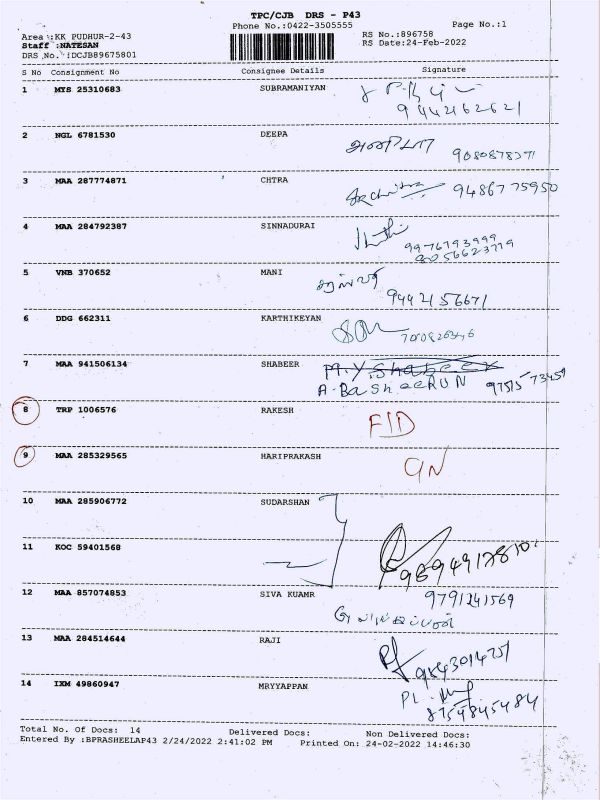 TPC/CJB DRS - P43
Phone No.:0422-3505555
Page No.:1
Area :KK PUDHUR-2-43
RS No.:896758
Staff :NATESAN
RS Date:24-Feb-2022
DRS No. :DCJB89675801
S No Consignment No Consignee Details Signature
1 MTS 25310683 SUBRAMANIYAN
9442162621
2 NGL 6781530 DEEPA
9080878371
3 MAA 287774871 CHTRA
9486775950
4 MAA 284792387 SINNADURAI
9976793999
8056623779
5 VNB 370652 MANI
9442156671
6 DDG 662311 KARTHIKEYAN
7 MAA 941506134 SHABEER M.Y.Shabeer
A-BaSheeRUN
8 TRP 1006576 RAKESH F/D
9 MAA 285329565 HARIPRAKASH
10 MAA 285906772 SUDARSHAN
11 KOC 59401568
9894917810
12 MAA 857074853 SIVA KUAMR 9791241569
13 MAA 284514644 RAJI
14 IXM 49860947 MRYYAPPAN
8754845484
Total No. Of Docs: 14 Delivered Docs: Non Delivered Docs:
Entered By :BPRASHEELAP43 2/24/2022 2:41:02 PM Printed On: 24-02-2022 14:46:30